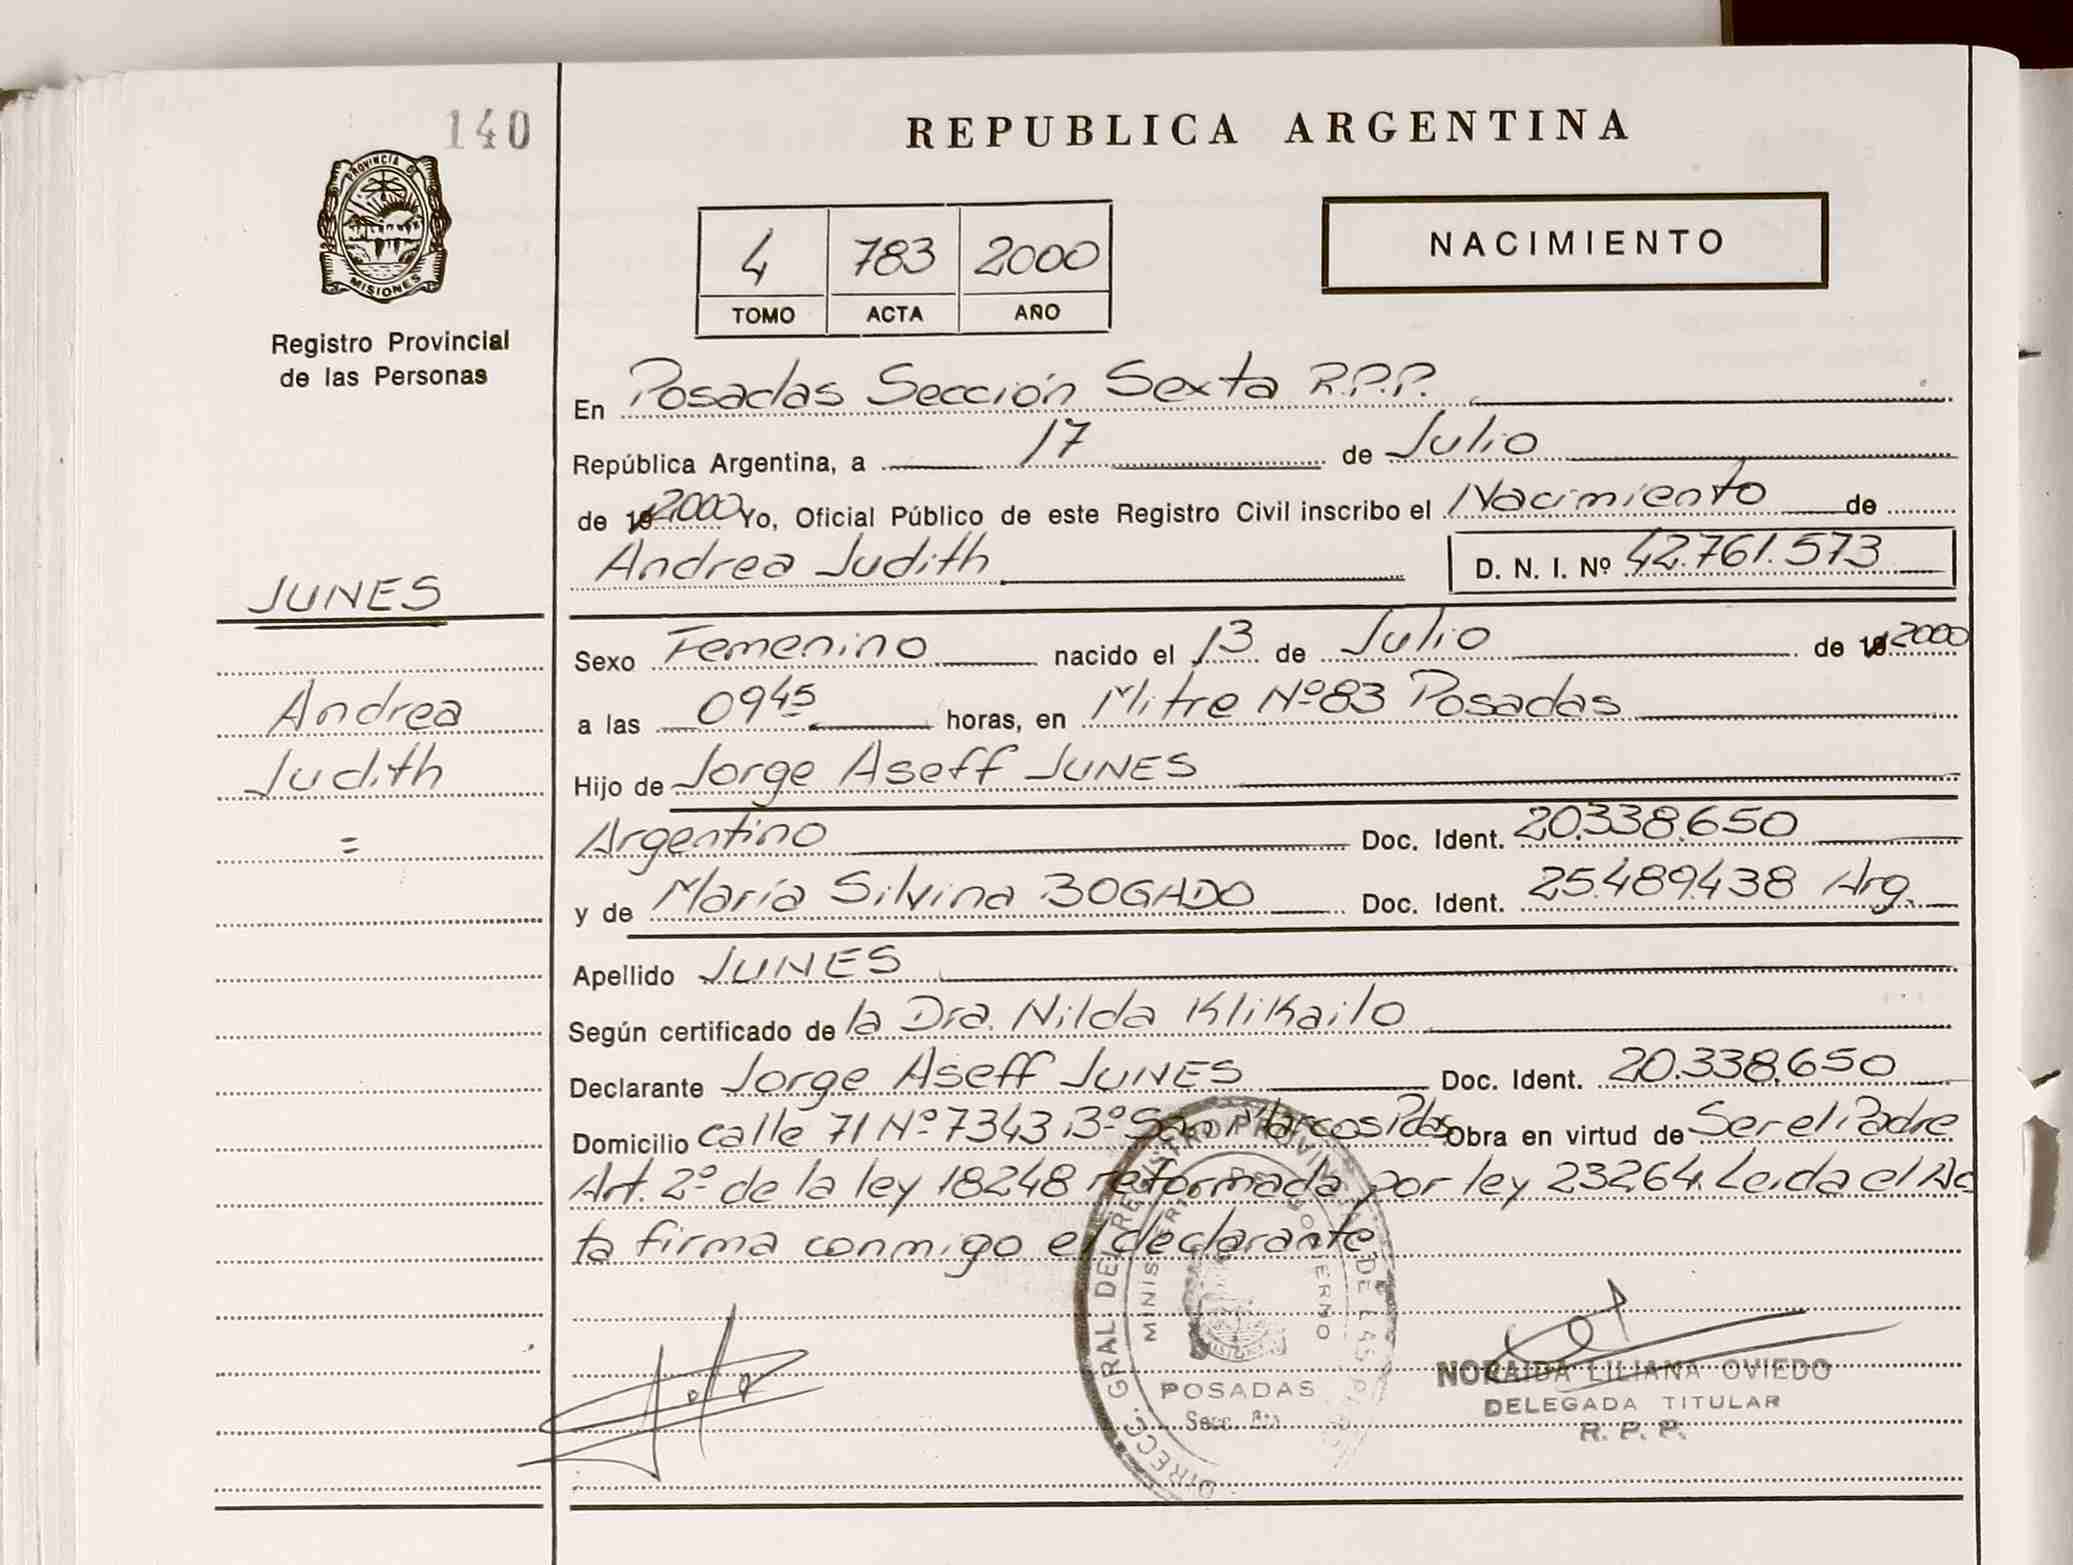 140
REPUBLICA ARGENTINA
PROVINCIA DE
MISIONES
4 783 2000
TOMO ACTA AÑO
NACIMIENTO
Registro Provincial
de las Personas
En Posadas Sección Sexta R.P.P.
República Argentina, a 17 de Julio
de 19 2000 Yo, Oficial Público de este Registro Civil inscribo el Nacimiento de
Andrea Judith D. N. I. Nº 42.761.573
JUNES
Sexo Femenino nacido el 13 de Julio de 19 2000
Andrea
a las 0945 horas, en Mitre Nº 83 Posadas
Judith
Hijo de Jorge Aseff JUNES
=
Argentino Doc. Ident. 20.338.650
y de María Silvina BOGADO Doc. Ident. 25.489.438 Arg.
Apellido JUNES
Según certificado de la Dra. Nilda Klikailo
Declarante Jorge Aseff JUNES Doc. Ident. 20.338.650
Domicilio calle 71 Nº 7343 Bº San Marcos Pdas Obra en virtud de Ser el Padre
Art. 2º de la ley 18248 reformada por ley 23264. Leida el Ac
ta firma conmigo el declarante.
DIRECC. GRAL DEL REGISTRO PROVINCIAL DE LAS
MINISTERIO DE GOBIERNO
POSADAS
Secc.
NORAIDA LILIANA OVIEDO
DELEGADA TITULAR
R. P. P.